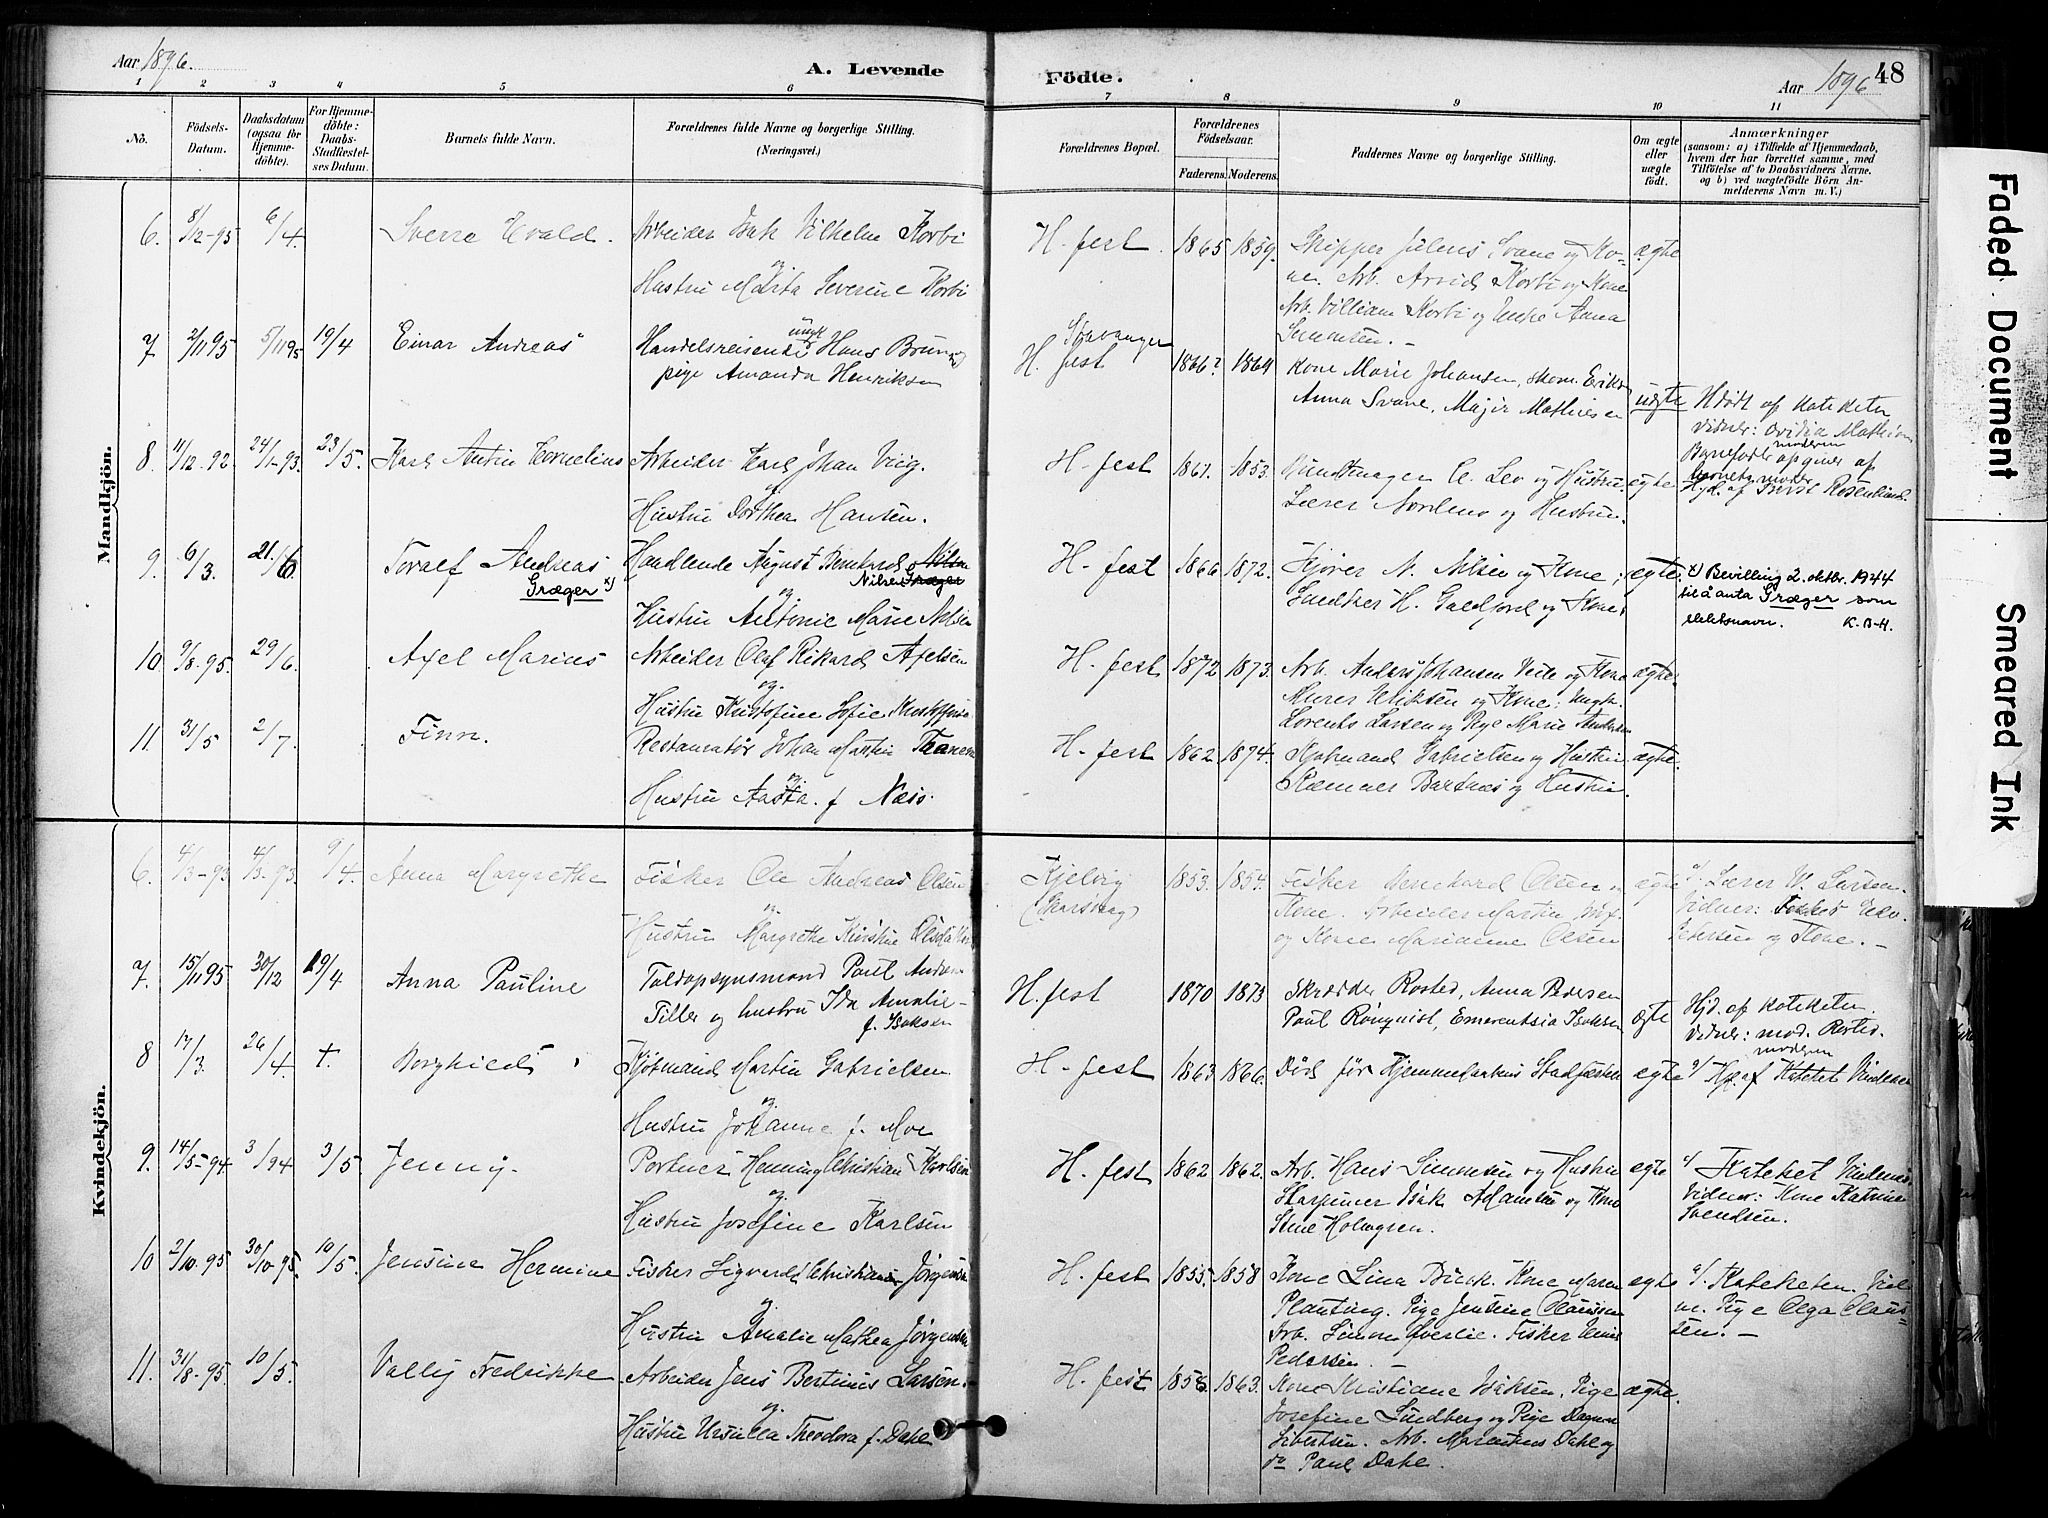 Aar 1896.
A. Levende
Födte.
Aar 1896
48
1 2 3 4 5 6 7 8 9 10 11
No.
Födsels-
Datum.
Daabsdatum
(ogsaa for
Hjemme-
döbte).
For Hjemme-
döbte:
Daabs-
Stadfæstel-
ses Datum.
Barnets fulde Navn.
Forældrenes fulde Navne og borgerlige Stilling.
(Næringsvei.)
Forældrenes Bopæl.
Forældrenes
Födselsaar.
Faderens. Moderens.
Faddernes Navne og borgerlige Stilling.
Om ægte
eller
uægte
födt.
Anmærkninger
(saasom: a) i Tilfælde af Hjemmedaab,
hvem der har forrettet samme, med
Tilföielse af to Daabsvidners Navne,
og b) ved uægtefödte Börn An-
melderens Navn m. V.)
Mandkjön.
6. 8/12-95 6/4 Sverre Evald. Arbeider Isak Vilhelm Korbi
og
Hustru Marita Severine Korbi
H. fest. 1865 1859.
Skipper Julens Svane og Ko-
ne. Arb. Arvid Korbi og Kone
Arb. Villiam Korbi og Enke Anna
Simonsen. -
ægte
7 2/11 95 5/11 95 19/4 Einar Andreas
Handelsreisende ungk Hans Bruun og
pige Amanda Henriksen
Stavanger
H. fest 1866? 1864
Kone Marie Johansen, skom. Erikson
Anna Svane, Major Mathiesen
uægte
Hdøbt af kateketen
Vidner: Ovidia Mathisen
moderen
Barnefader opgives af
barnets moder
8. 11/12-92 24/1-93. 23/5. Karl Anton Cornelius Arbeider Carl Johan Viig.
og
Hustru Dorthea Hansen.
H. fest 1861. 1853.
C. Lev og Hustru.
Lærer Nordmo og Hustru.
ægte
Hjd. af Rosenlund
9. 6/3. 21/6 Toralf Andreas
Græger x)
Handlende August Bernhard Nilsen
Nilsen Græger
og
Hustru Antonie Marie Nilsen
H. fest 1866 1872.
N. Nilsen og Kone;
H. og Kone
ægte.
x) Bevilling 2. oktbr. 1944
til å anta Græger som
slektsnavn. K. B-H.
10. 9/8-95. 29/6. Axel Marius Arbeider Olaf Rikard Axelsen
og
Hustru Kristofine Sofie Kristoffersen
H. fest 1872 1873.
Arb. Anders Johansen og Kone
Murer og Kone; Ungk.
Lorents Larsen og Pige Marie Andersen
ægte.
11. 31/5 2/7. Finn. Restauratör Johan Martin Thoresen
og
Hustru Aasta. f Næss.
H. fest 1862. 1874.
Kjøbmand Gabrielsen og Hustru
Kæmner og Hustru.
ægte.
Kvindekjön.
6. 4/3-93 4/3.93. 9/4. Anna Margrethe Fisker Ole Andreas Olsen
og
Hustru Margrethe Kirstine
Kjelvig
(Skarsvaag)
1853. 1854.
Fisker Bernhard Olsen og
Kone. Arbeider Martin
og Kone Marianne Olsen
ægte
a/ Lærer W. Larsen.
Vidner: Fisker Edv.
Petersen og Kone. -
7. 15/11 95 30/12 19/4 Anna Pauline Toldopsynsmand Paul Andreas
Tiller og hustru Ida Amalie
f. Isaksen
H. fest 1870 1873
Skrædder Rosted, Anna Pedersen
Paul Rönquist, Emerentsia Isaksen
ægte
Hjd. af Kateketen.
Vidner: mod. Rosted.
moderen
8 17/3. 26/4. + Borghild Kjøbmand Martin Gabrielsen
og
Hustru Johanne f. Moe
H. fest 1863. 1866.
Död för Hjemmedaabens Stadfæstelse
ægte
a/ Hjd af Kateket
9. 14/5-94 3/94 3/5 Jenny. Portner Henning Christian Karlsen
og
Hustru Josefine Karlsen
H. fest 1862 1862.
Arb. Hans Simonsen og Hustru
Isak Adamsen og Kone
Stine Holmgren.
ægte
a/ Kateket
Vidner: Kone Katrine
Svendsen.
10 2/10.95 30/10-95. 10/5. Jensine Hermine Fisker Sigvard Christian Jørgensen
og
Hustru Amalie Mathea Jørgensen
H. fest 1855 1858
Kone Lina Buck. Kone Maren
Planting. Pige Jensine Clausen
Arb. Simon Øverlie. Fisker
Pedersen. -
ægte
a/. Kateketen. Vid-
ne. Pige Olga Claus-
sen. -
11. 31/8-95 10/5. Vally Fredrikke Arbeider Jens Bertinus Larsen.
og
Hustru Ursulla Theodora f. Dahl
H. fest 1856. 1863.
Kone Kristiane Isaksen. Pige
Josefine Lindberg og Pige Dagny
Sivertsen. Arb. Marentius Dahl og
do Paul Dahl.
ægte.
Faded Document
Smeared Ink